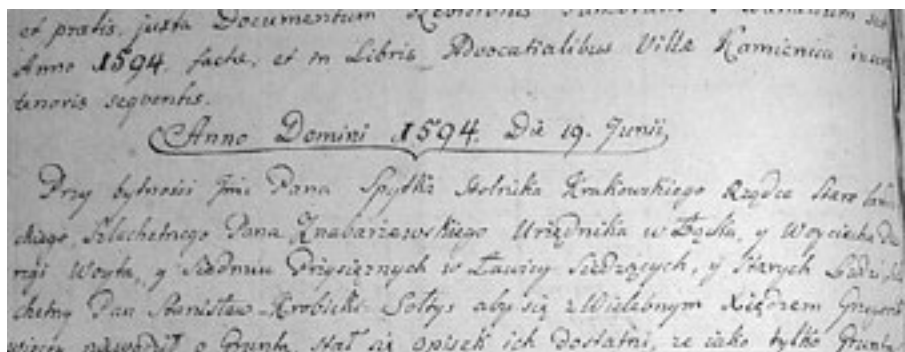 et pratis, juxta Documentum
Anno 1594. factae, et in Libris Advocatialibus Villae Kamienica
tenoris sequentis.
Anno Domini 1594. Die 19. Junii,
Przy bytnosci Jmć Pana Spytka Stolnika Krakowskiego Rządce
skiego, Szlachetnego Pana Urzędnika w Łącku, y Woyciecha
Woyta, y Siedmiu Przysięznych w Ławicy Siedzących, y Starych Ludzi
chetny Pan Stanisław Krobicki Sołtys aby się z Wielebnym Xiędzem
o Grunta, stał się opisek ich dostatni, ze iako tylko Grunta